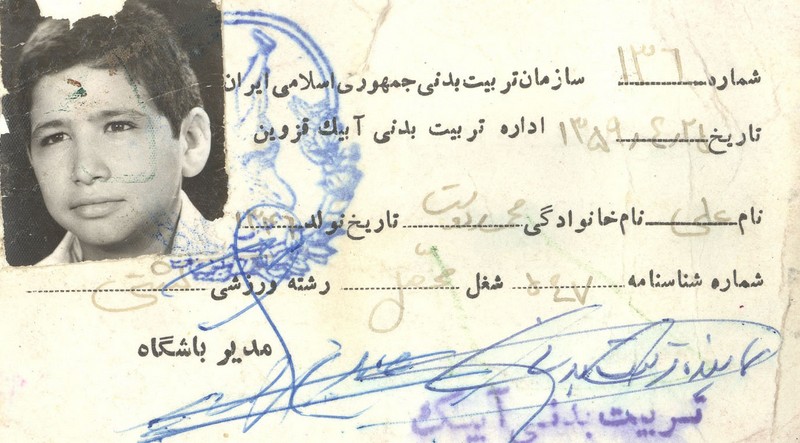 شماره ۱۳۶ سازمان تربیت بدنی جمهوری اسلامی ایران
تاریخ ۱۳۵۹ اداره تربیت بدنی آبیك قزوین
نام علی نام خانوادگی تاریخ تولد ۱۳۴۶
شماره شناسنامه ۵۴۷ شغل محصل رشته ورزشی کشتی
مدیر باشگاه
نماینده تربیت بدنی
تربیت بدنی آبیک